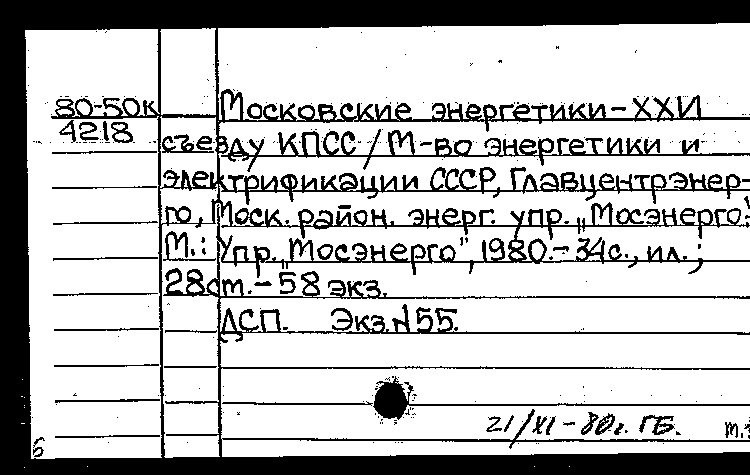 80-50к Московские энергетики-XXVI
4218 съезду КПСС/М-во энергетики и
электрификации СССР, Главцентрэнер-
го, Моск. район. энерг. упр. „Мосэнерго."
М.: Упр. „Мосэнерго", 1980.- 34с., ил.;
28см.- 58 экз.
ДСП. Экз.№55.
21/XI-80г. ГБ.
б